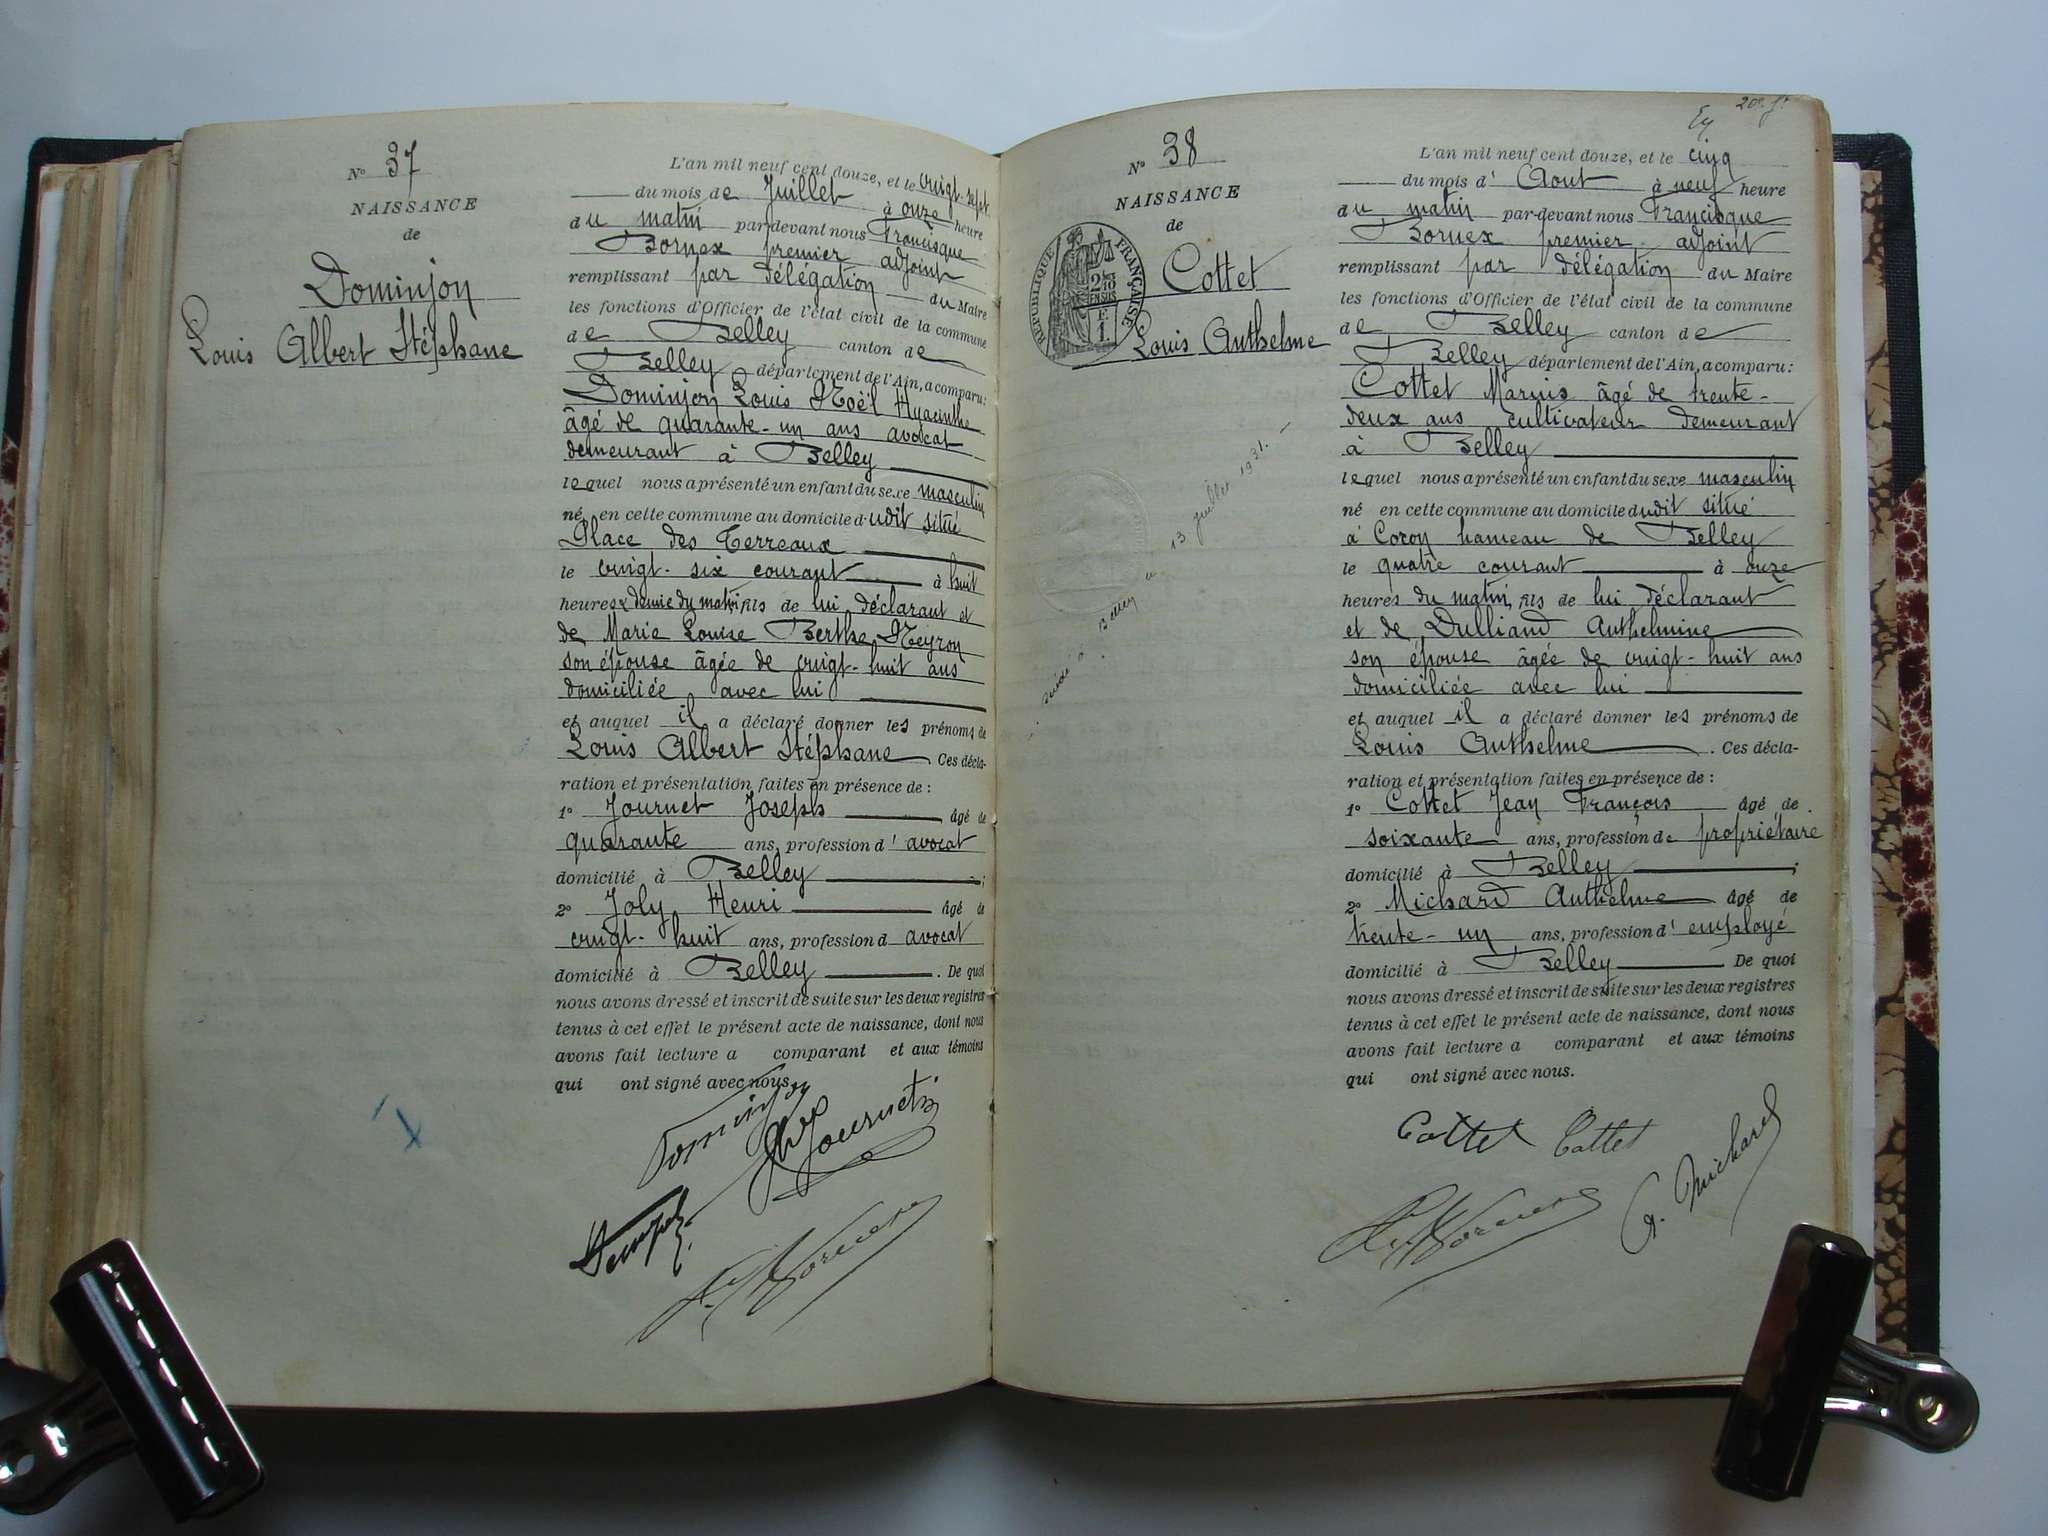 N° 37
NAISSANCE
de
Dominjon
Louis Albert Stéphane
L'an mil neuf cent douze, et le vingt-sept
du mois de Juillet à onze heure
du matin par-devant nous Francisque
Bornex premier adjoint
remplissant par délégation du Maire
les fonctions d'Officier de l'état civil de la commune
de Belley canton de
Belley département de l'Ain, a comparu:
Dominjon Louis Noël Hyacinthe
âgé de quarante-un ans avocat
demeurant à Belley
lequel nous a présenté un enfant du sexe masculin
né en cette commune au domicile dudit situé
Place des Terreaux
le vingt-six courant à huit
heures & demie du matin, fils de lui déclarant et
de Marie Louise Berthe Neyron
son épouse âgée de vingt-huit ans
domiciliée avec lui
et auquel il a déclaré donner les prénoms de
Louis Albert Stéphane. Ces décla-
ration et présentation faites en présence de :
1° Journet Joseph âgé de
quarante ans, profession d'avocat
domicilié à Belley ;
2° Joly Henri âgé de
vingt-huit ans, profession d avocat
domicilié à Belley. De quoi
nous avons dressé et inscrit de suite sur les deux registres
tenus à cet effet le présent acte de naissance, dont nous
avons fait lecture a comparant et aux témoins
qui ont signé avec nous.
Dominjon
Journet
N° 38
NAISSANCE
de
Cottet
Louis Anthelme
RÉPUBLIQUE FRANÇAISE
à Belley
13 juillet 1931.
20e ft
L'an mil neuf cent douze, et le cinq
du mois d'Aout à neuf heure
du matin par-devant nous Francisque
Bornex premier adjoint
remplissant par délégation du Maire
les fonctions d'Officier de l'état civil de la commune
de Belley canton de
Belley département de l'Ain, a comparu:
Cottet Marius âgé de trente-
deux ans cultivateur demeurant
à Belley
lequel nous a présenté un enfant du sexe masculin
né en cette commune au domicile dudit situé
à Coron hameau de Belley
le quatre courant à onze
heures du matin, fils de lui déclarant
et de Dulliand Anthelmine
son épouse âgée de vingt-huit ans
domiciliée avec lui
et auquel il a déclaré donner les prénoms de
Louis Anthelme. Ces décla-
ration et présentation faites en présence de :
1° Cottet Jean François âgé de
soixante ans, profession de propriétaire
domicilié à Belley ;
2° Michard Anthelme âgé de
trente-un ans, profession d'employé
domicilié à Belley De quoi
nous avons dressé et inscrit de suite sur les deux registres
tenus à cet effet le présent acte de naissance, dont nous
avons fait lecture a comparant et aux témoins
qui ont signé avec nous.
Cottet Cottet
A. Michard